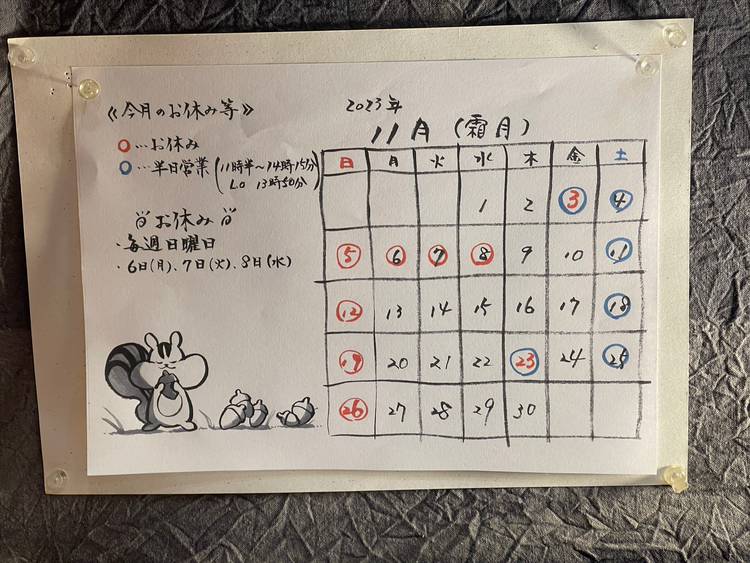 ≪今月のお休み等≫
○…お休み
○…半日営業(11時半〜14時15分
LO 13時50分)
お休み
・毎週日曜日
・6日(月)、7日(火)、8日(水)
2023年
11月(霜月)
日 月 火 水 木 金 土
1 2 3 4
5 6 7 8 9 10 11
12 13 14 15 16 17 18
19 20 21 22 23 24 25
26 27 28 29 30